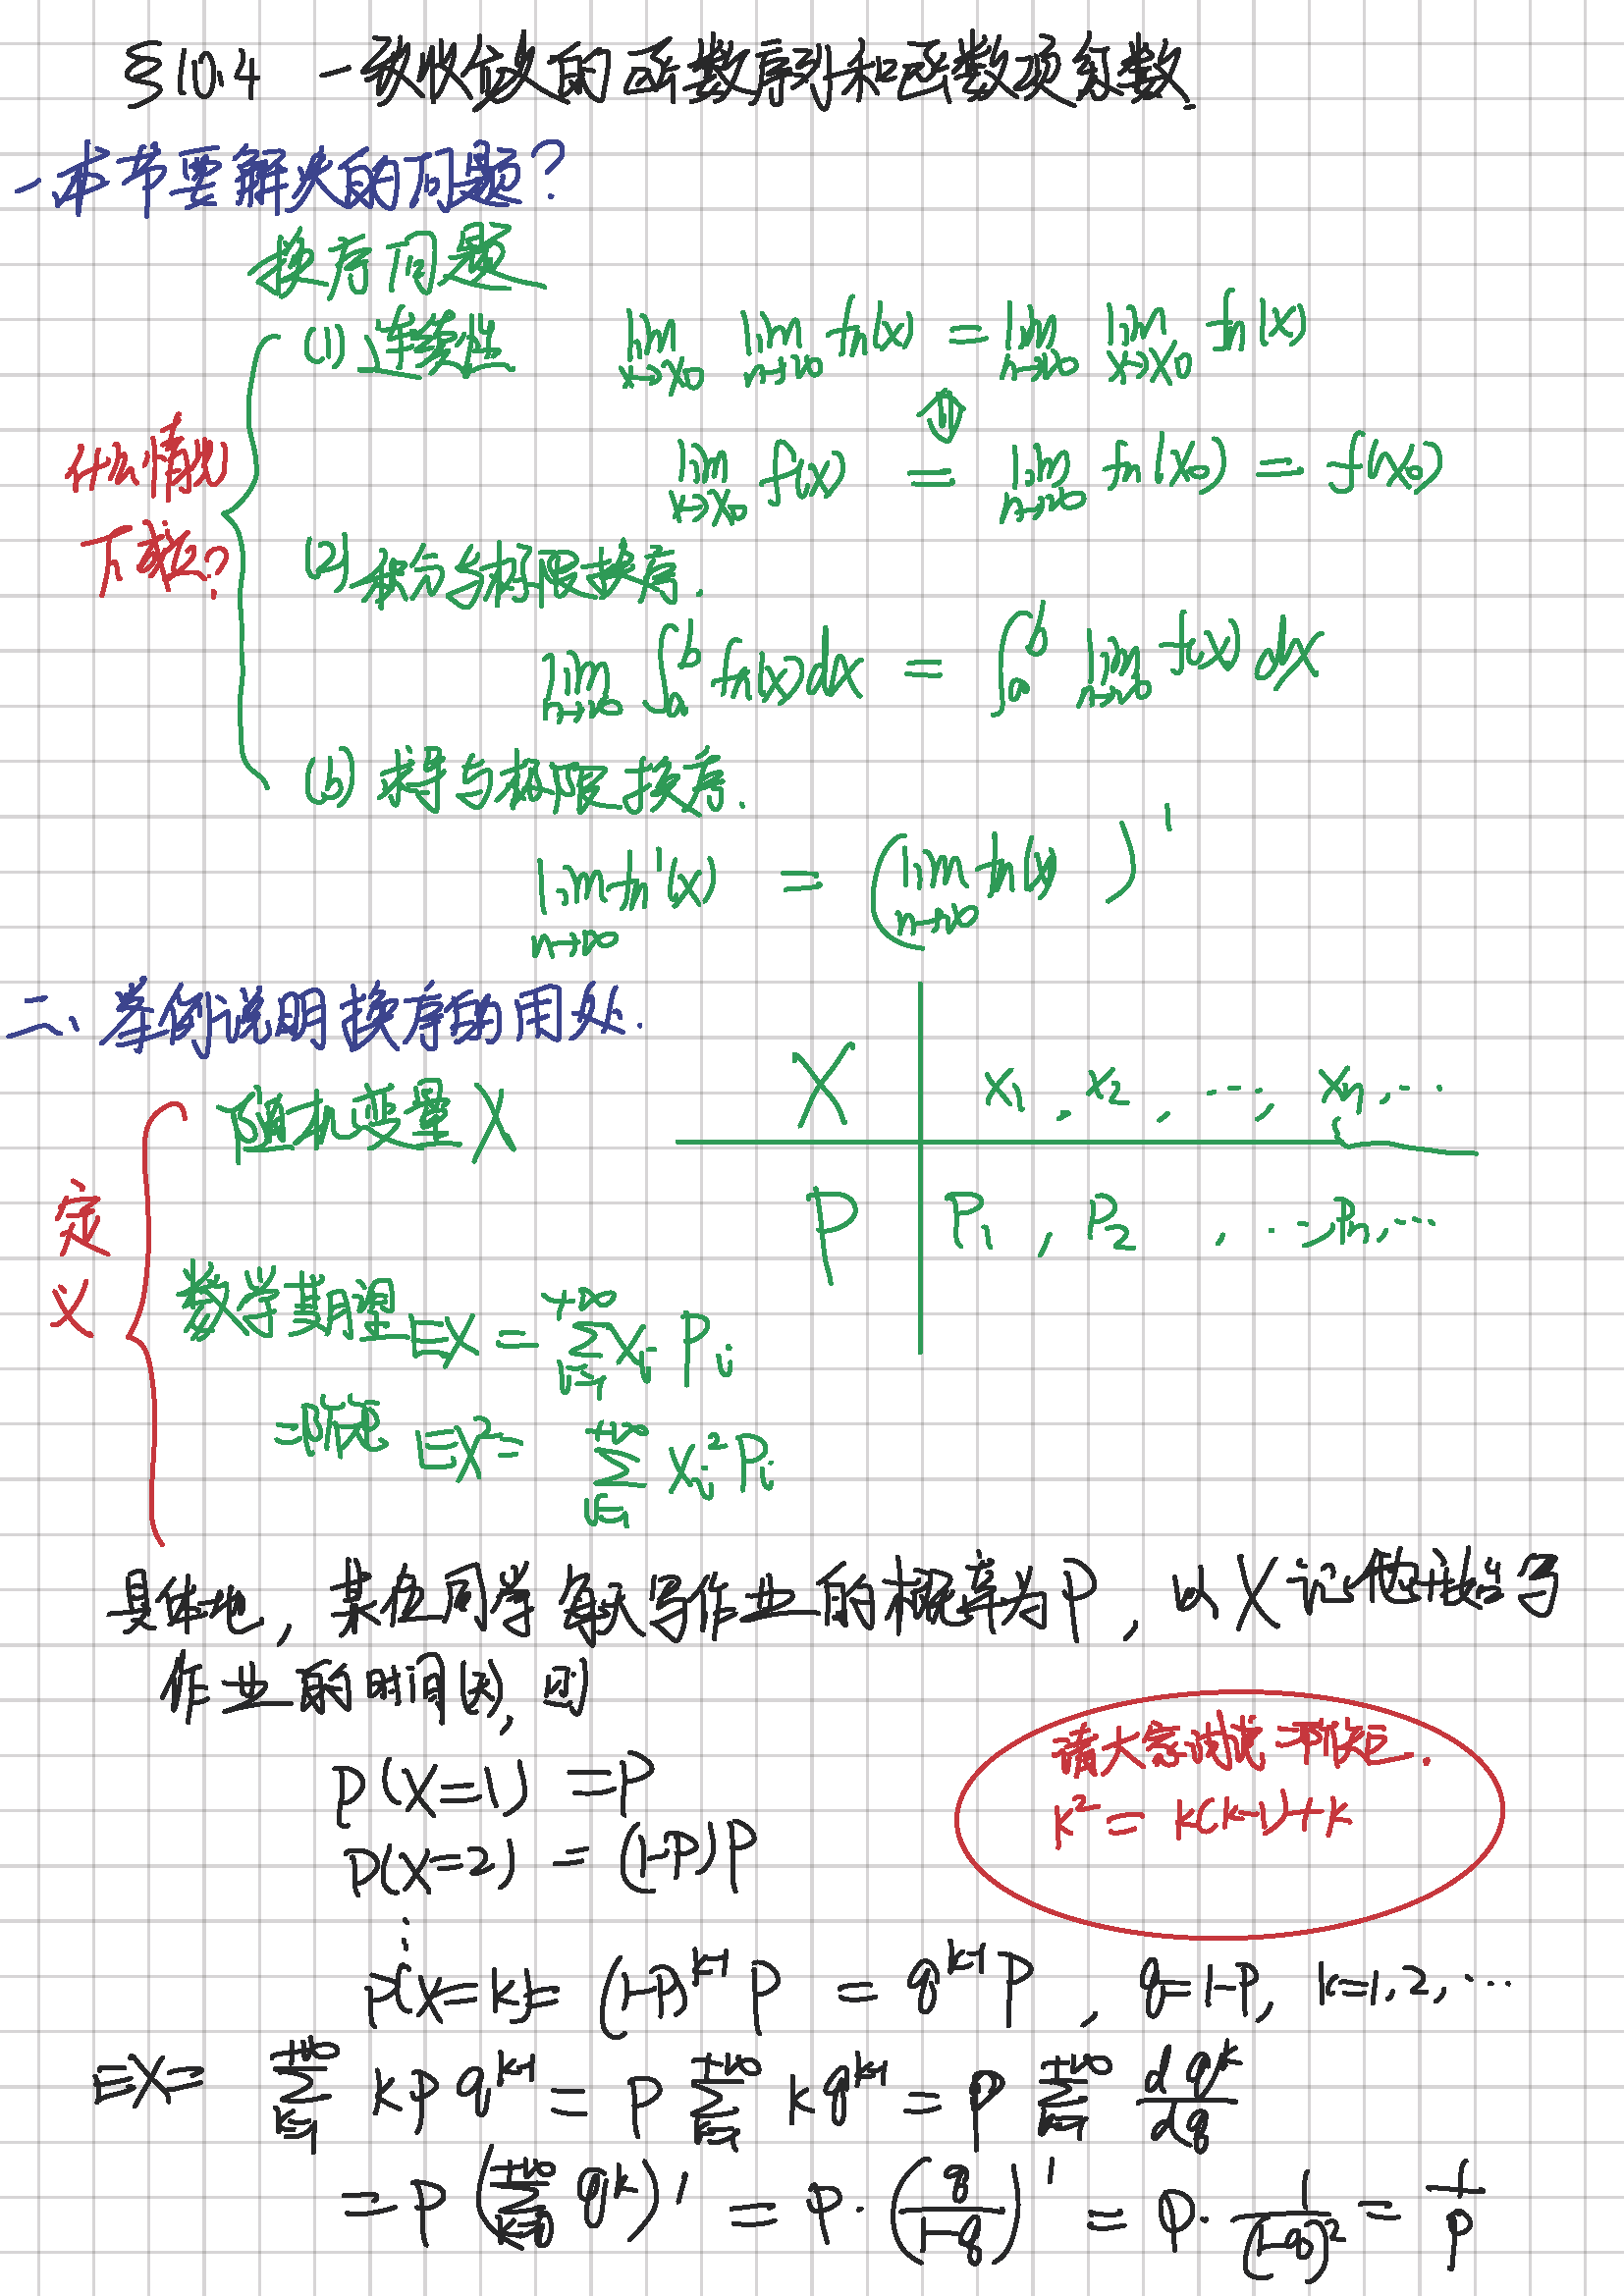 §10.4 一致收敛的函数序列和函数项级数.
一.本节要解决的问题?
换序问题
(1) 连续性 lim_{x→x₀} lim_{n→∞} fn(x) = lim_{n→∞} lim_{x→x₀} fn(x)
⇕
lim_{x→x₀} f(x) = lim_{n→∞} fn(x₀) = f(x₀)
什么情况
下成立?
(2) 积分与极限换序.
lim_{n→∞} ∫_a^b fn(x)dx = ∫_a^b lim_{n→∞} f(x) dx
(3) 求导与极限换序.
lim_{n→∞} fn'(x) = (lim_{n→∞} fn(x))'
二、举例说明换序的用处.
随机变量 X
X x₁, x₂, …, xn, …
P P₁, P₂, …, Pn, …
定
义
数学期望 EX = Σ_{i=1}^{+∞} xi Pi
二阶矩 EX² = Σ_{i=1}^{+∞} xi² Pi
具体地, 某位同学每天写作业的概率为P, 以X记他开始写
作业的时间(天), 则
P(X=1) = P
P(X=2) = (1-P)P
⋮
请大家试试二阶矩.
k² = k(k-1)+k
P(X=k) = (1-P)^{k-1} P = q^{k-1} P, q=1-P, k=1,2,…
EX = Σ_{k=1}^{+∞} k p q^{k-1} = P Σ_{k=1}^{+∞} k q^{k-1} = P Σ_{k=1}^{+∞} dq^k/dq
= P (Σ_{k=0}^{+∞} q^k)' = P·(q/(1-q))' = P·1/(1-q)² = 1/p